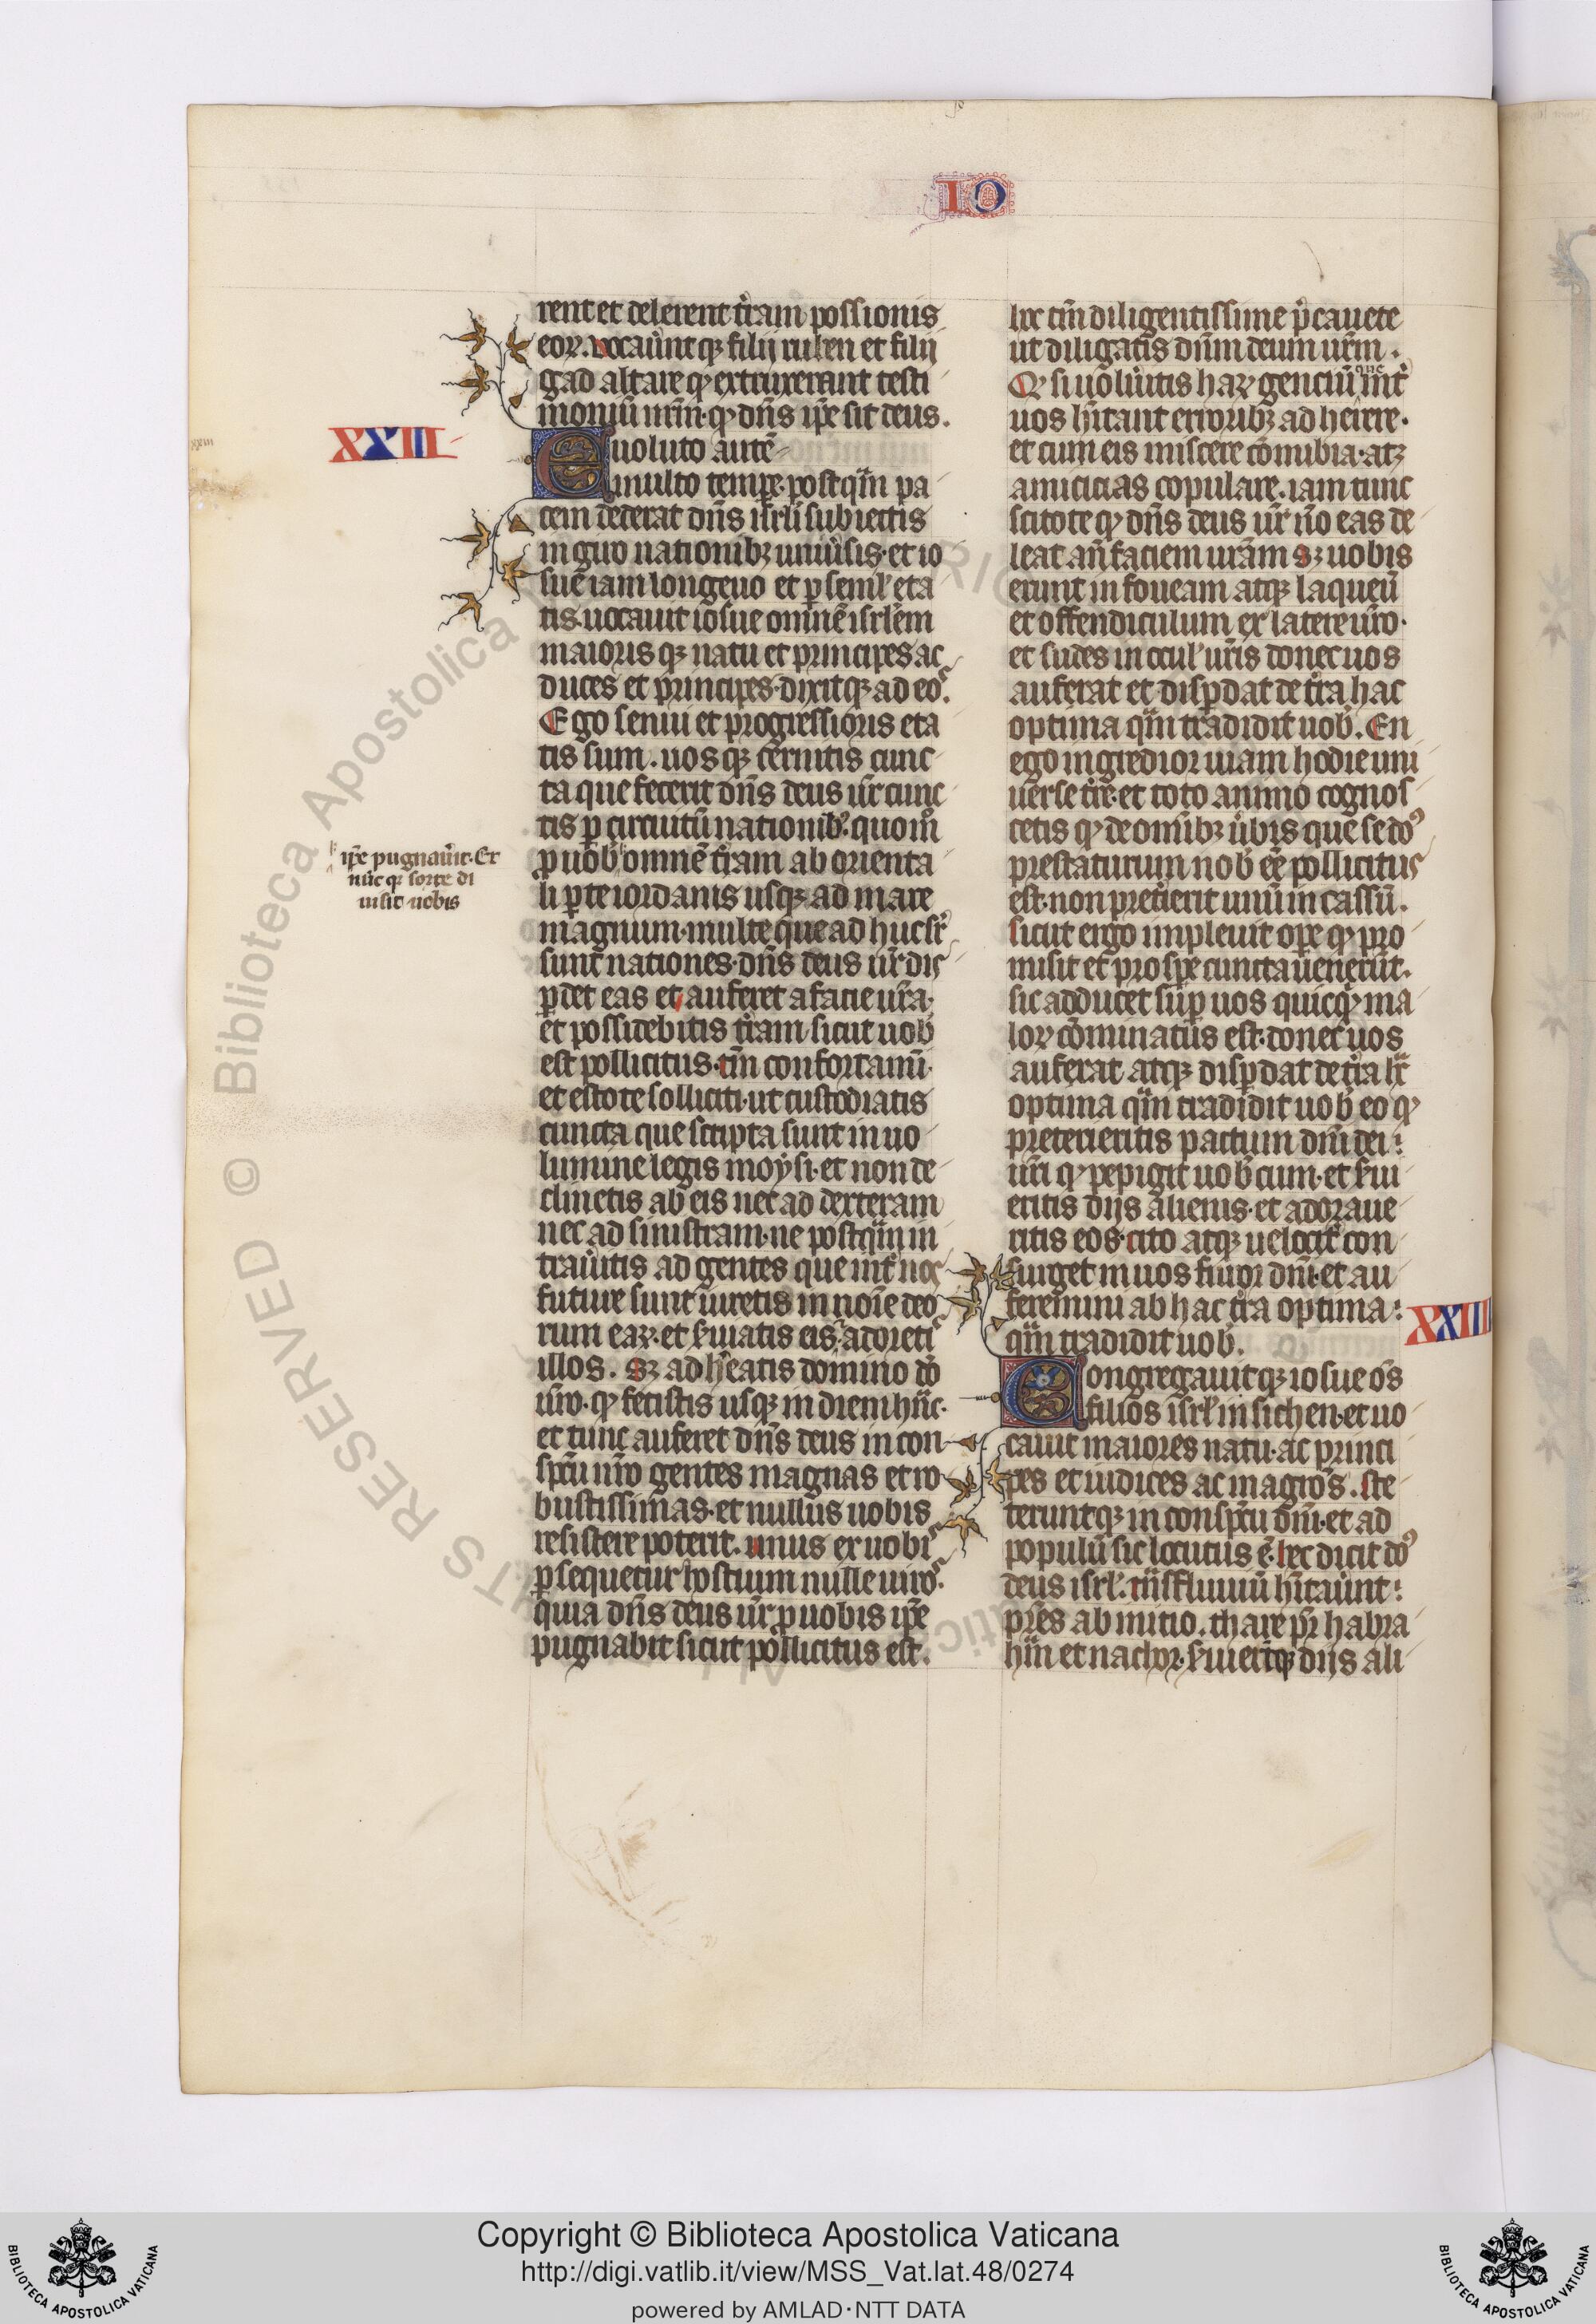 IO
rent et delerent t̾ram possionis
eoꝝ. vocaũntqꝫ filij ruben et filij
gad altare ꝙ extruxerant testi
moniũ nr̃m. ꝙ dñs ip̃e sit deus.
XXIII
Euoluto autẽ
multo temꝑe. postqͣm pa
cem dederat dñs isrl̃i subiectis
in giro nationibꝫ uniũsis. et io
sue iam longeuo et ꝑsenil̾ eta
tis. uocauit iosue omnẽ isrl̃em
maioris qꝫ natu et principes ac
duces et principes. dixitqꝫ ad eoˢ.
Ego senui et progressioris eta
tis sum. uosqꝫ cernitis cunc
ta que fecerit dñs deus ur̃ cunc
tis ꝑ circuitũ nationibꝫ. quom̊
ꝓ uob̾ omnẽ t̾ram ab orienta
li ꝑte iordanis usqꝫ ad mare
magnum. multeque ad huc suꝑ
sunt nationes. dñs deus ur̃ dis
ꝑdet eas et auferet a facie ur̃a.
et possidebitis t̾ram sicut uob̾
est pollicitus. tm̃ confortamĩ.
et estote solliciti. ut custodiatis
cuncta que scripta sunt in uo
lumine legis moysi. et non de
clinetis ab eis nec ad dexteram
nec ad sinistram. ne postqͣm in
traũitis ad gentes que int̾ uos
future sunt iuretis in noĩe deo
rum eaꝝ. et s̾uiatis eis. et adoretis
illos. sꝫ adhẽatis domino dõ
ur̃o. ꝙ fecistis usqꝫ in diem hũc.
et tunc auferet dñs deus in con
spc̃u ur̃o gentes magnas et ro
bustissimas. et nullus uobis
resistere poterit. unus ex uobis
ꝑsequetur hostium mille uiroˢ.
quia dñs deus ur̃ ꝓ uobis ip̃e
pugnabit sicut pollicitus est.
ip̃e pugnaũit. Et
nũc qꝫ sorte di
uisit uobis
hoc tm̃ diligentissime p̃cauete
ut diligatis dñm deum ur̃m.
Qꝙ si uolũitis haꝝ genciũ que int̾
uos hĩtant erroribꝫ ad herere.
et cum eis miscere cõnubia. atqꝫ
amicicias copulare. iam tunc
scitote ꝙ dñs deus ur̃ nõ eas de
leat añ faciem ur̃am sꝫ uobis
erunt in foueam atqꝫ laqueũ
et offendiculum ex latere ur̃o.
et sudes in ocul̾ ur̃is donec uos
auferat et disꝑdat de t̾ra hac
optima qͣm tradidit uob̾. En
ego ingredior uiam hodie uni
uerse t̾re. et toto animo cognos
cetis ꝙ de om̃ibꝫ ũbis que se dñs
prestaturum nob̾ eẽ pollicitus
est. non pret̾ierit unũ in cassũ.
sicut ergo impleuit oꝑe ꝙ pro
misit et prospe cuncta uenerũt.
sic adducet suꝑ uos quicqͥd ma
loꝝ cõminatus est. donec uos
auferat atqꝫ disꝑdat de t̾ra hͣc
optima qͣm tradidit uob̾ eo ꝙ
preterieritis pactum dñi dei
ur̃i ꝙ pepigit uob̾cum. et s̾ui
eritis dijs alienis. et adoraue
ritis eos. cito atqꝫ uelocit̾ con
surget in uos furor dñi. et au
feremini ab hac t̾ra optima
qͣm tradidit uob̾.
XXIIII
Congregauitqꝫ iosue oẽs
filios isrl̾ in sichen. et uo
cauit maiores natu. ac princi
pes et iudices ac magr̃os. ste
teruntqꝫ in conspc̃u dñi. et ad
populũ sic locutus ẽ. hec dicit dñs
deus isrl̾. tñs fluuiũ hĩtaũnt
pr̃es ab initio. thare pr̃ habra
hͣm et nachor. s̾uiertqꝫ dijs ali
Copyright © Biblioteca Apostolica Vaticana
http://digi.vatlib.it/view/MSS_Vat.lat.48/0274
powered by AMLAD·NTT DATA
BIBLIOTECA APOSTOLICA VATICANA
BIBLIOTECA APOSTOLICA VATICANA